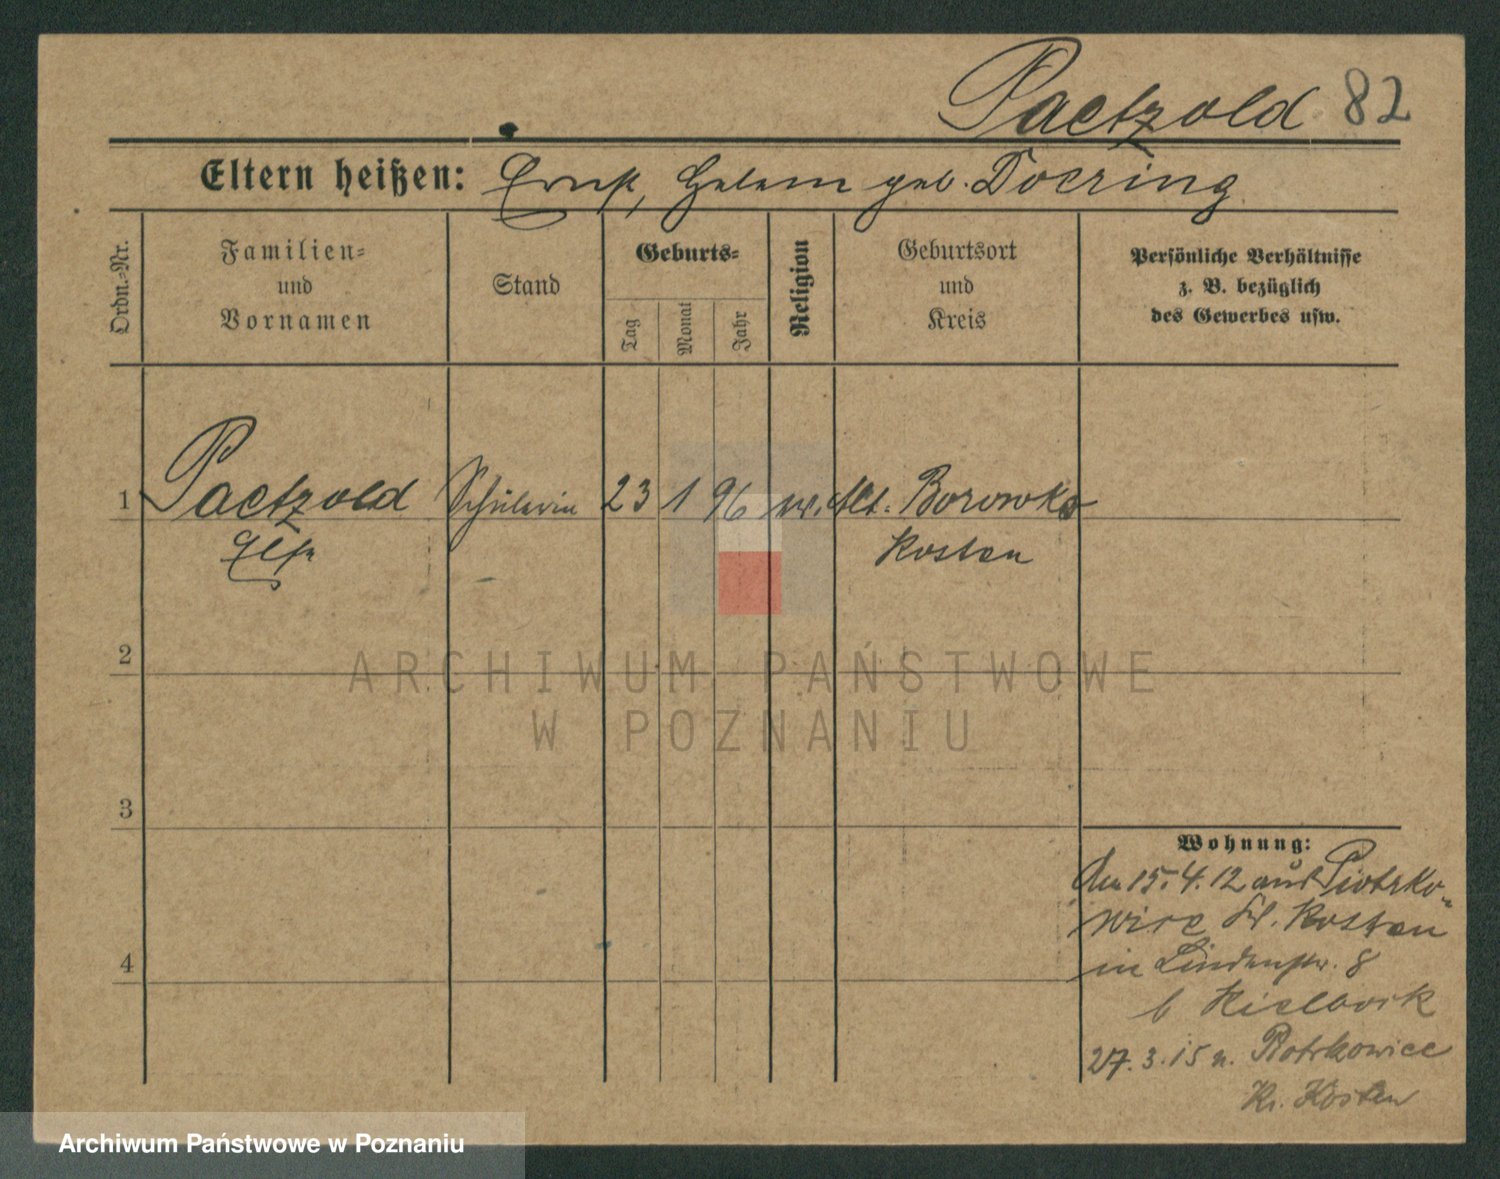 Paetzold 82
Eltern heißen: Ernst, Helene geb. Doering
Ordn.-Nr.
Familien-
und
Vornamen
Stand
Geburts-
Tag
Monat
Jahr
Religion
Geburtsort
und
Kreis
Persönliche Verhältnisse
z. B. bezüglich
des Gewerbes usw.
1 Paetzold Schülerin 23 1 96 ev. Alt-Borowko
Else Kosten
2
ARCHIWUM PAŃSTWOWE
W POZNANIU
3
Wohnung:
4
15.4.12 aus Piotrko-
wice Kr. Kosten
in Lindenstr. 8
b
27.3.15 n. Piotrkowice
Kr. Kosten
Archiwum Państwowe w Poznaniu